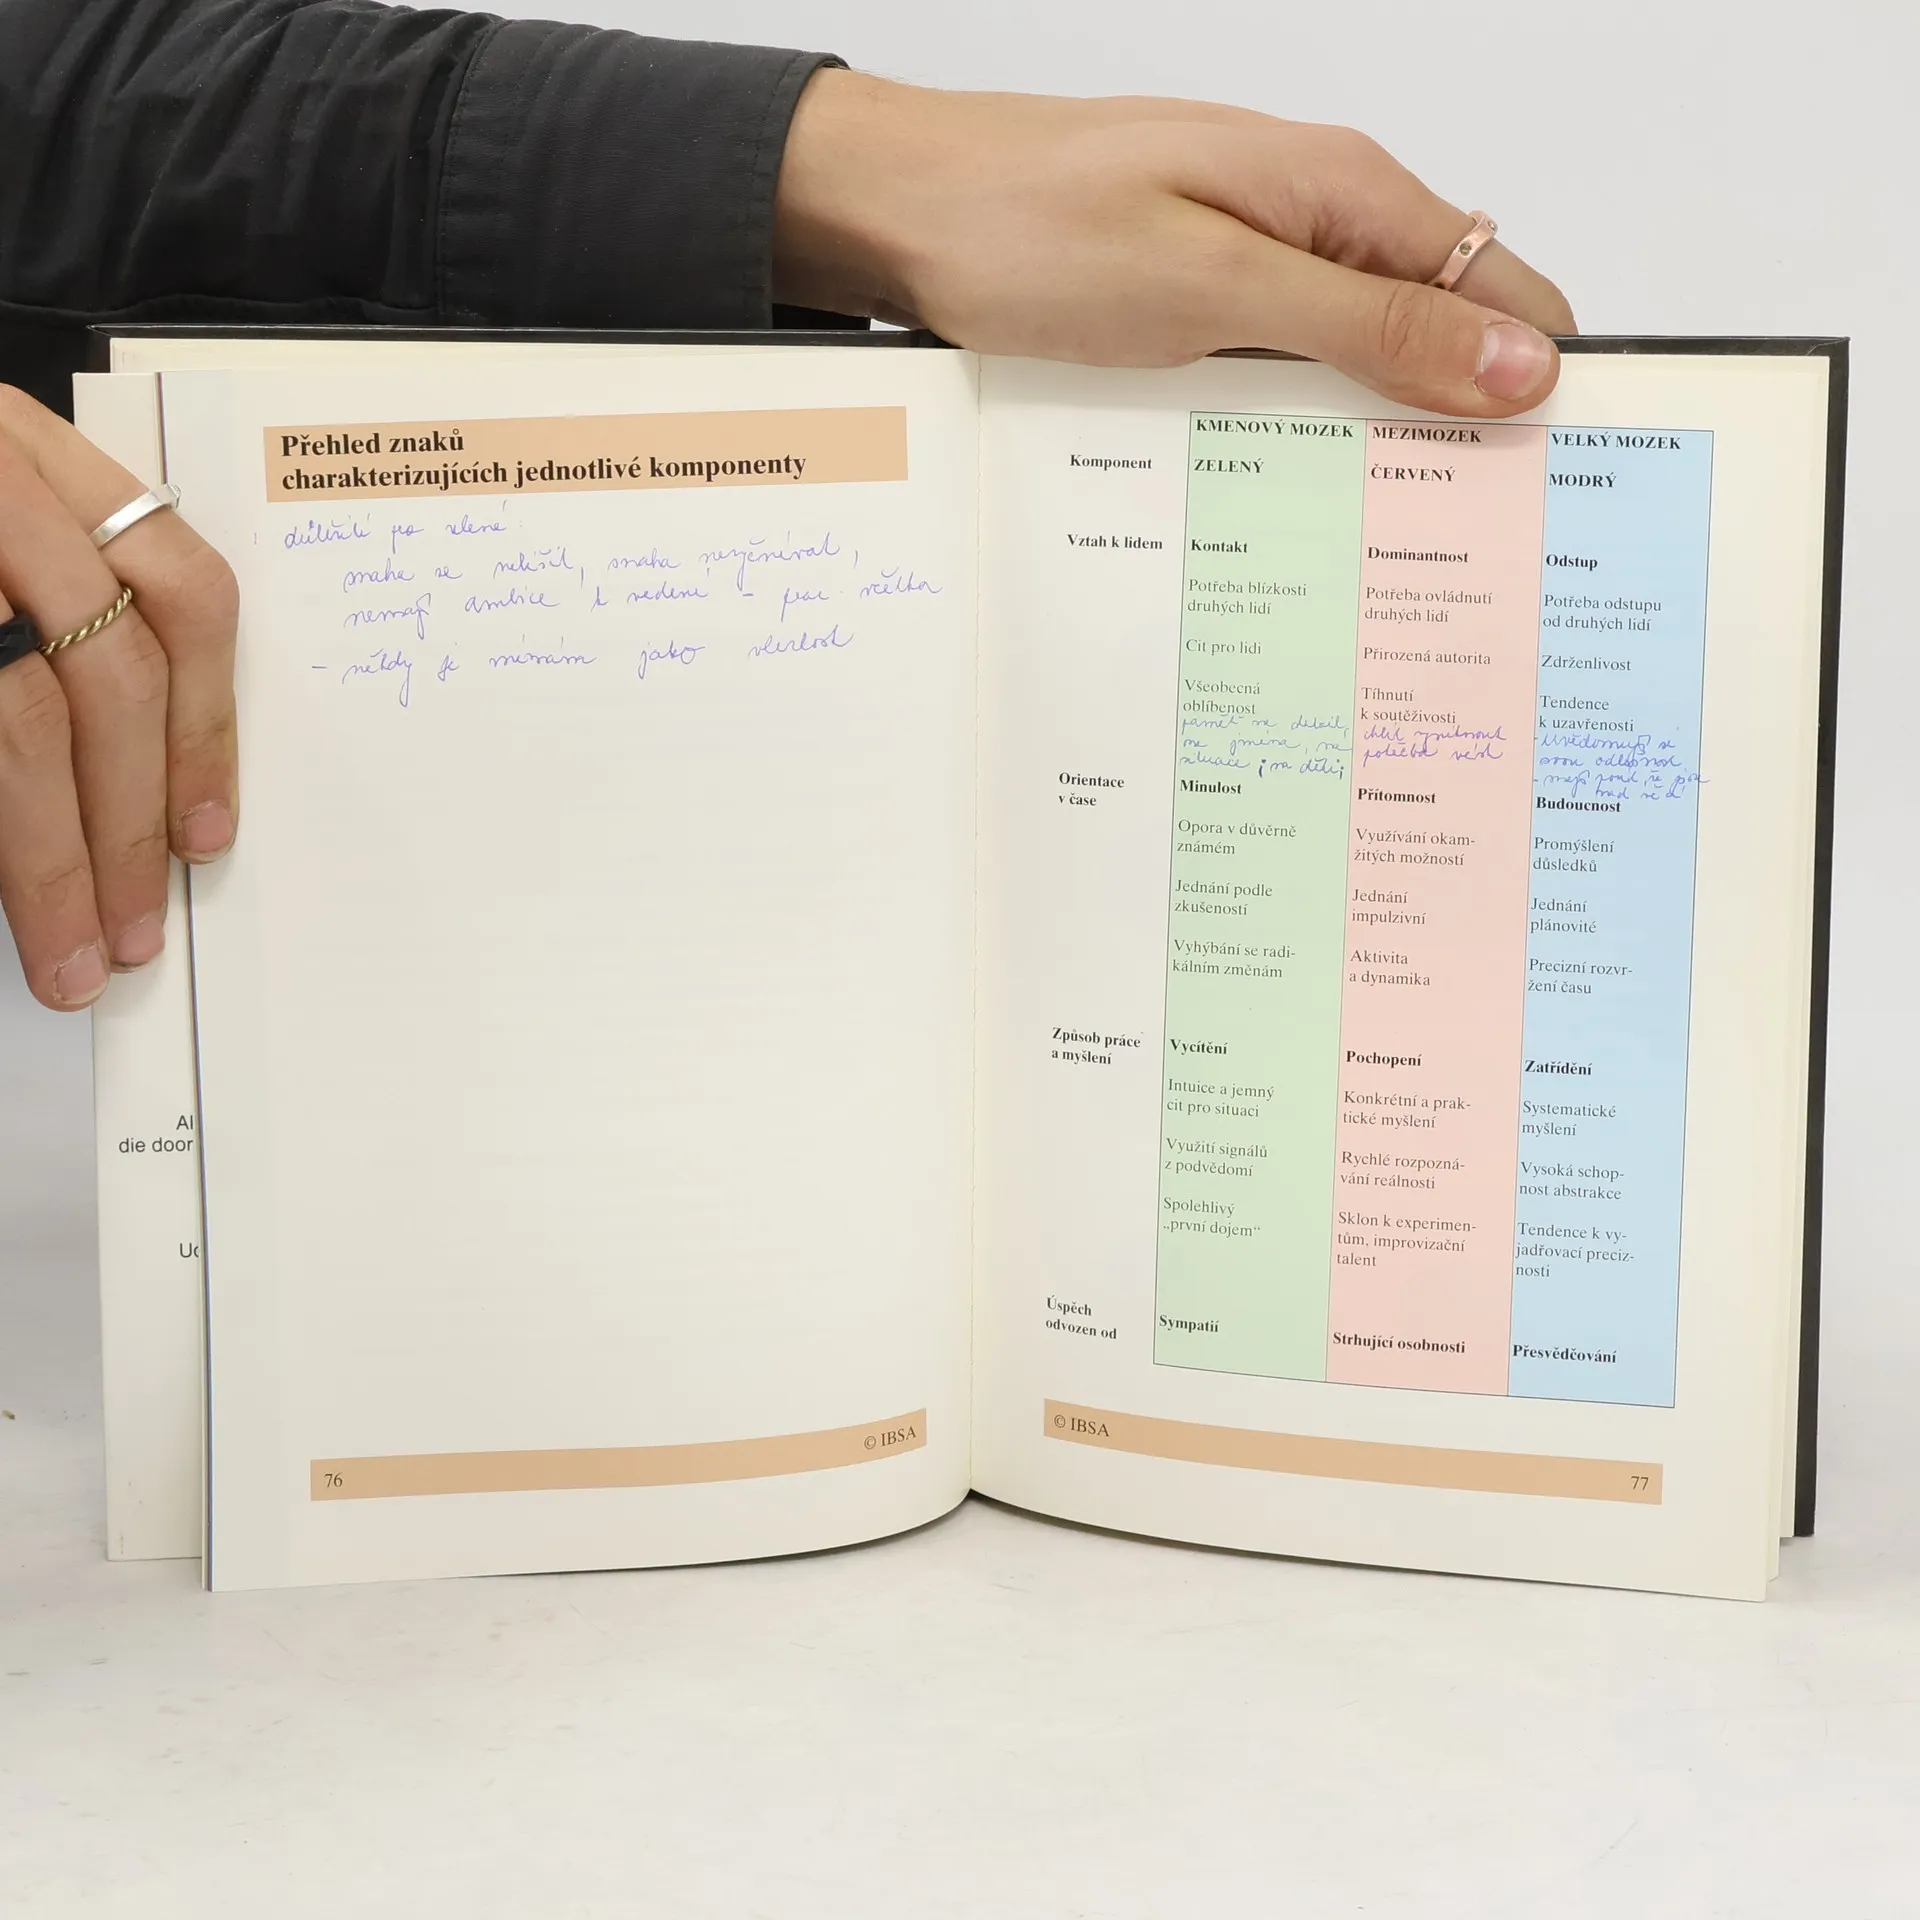 Přehled znaků
charakterizujících jednotlivé komponenty
důležité pro zelené:
snaha se nelišit, snaha nevyčnívat,
nemají ambice k vedení - prac. včelka
- někdy je vnímám jako vlezlost
Al
die door
Uc
76
© IBSA
KMENOVÝ MOZEK
MEZIMOZEK
VELKÝ MOZEK
Komponent
ZELENÝ
ČERVENÝ
MODRÝ
Vztah k lidem
Kontakt
Dominantnost
Odstup
Potřeba blízkosti
druhých lidí
Potřeba ovládnutí
druhých lidí
Potřeba odstupu
od druhých lidí
Cit pro lidi
Přirozená autorita
Zdrženlivost
Všeobecná
oblíbenost
Tíhnutí
k soutěživosti
Tendence
k uzavřenosti
paměť na detail,
na jména, na
situace ; na děti;
chtít vyniknout
potřeba vést
- uvědomují si
svou odlišnost
- mají pocit, že jsou
nad věcí
Orientace
v čase
Minulost
Přítomnost
Budoucnost
Opora v důvěrně
známém
Využívání okam-
žitých možností
Promýšlení
důsledků
Jednání podle
zkušeností
Jednání
impulzivní
Jednání
plánovité
Vyhýbání se radi-
kálním změnám
Aktivita
a dynamika
Precizní rozvr-
žení času
Způsob práce
a myšlení
Vycítění
Pochopení
Zatřídění
Intuice a jemný
cit pro situaci
Konkrétní a prak-
tické myšlení
Systematické
myšlení
Využití signálů
z podvědomí
Rychlé rozpozná-
vání reálnosti
Vysoká schop-
nost abstrakce
Spolehlivý
„první dojem“
Sklon k experimen-
tům, improvizační
talent
Tendence k vy-
jadřovací preciz-
nosti
Úspěch
odvozen od
Sympatií
Strhující osobnosti
Přesvědčování
© IBSA
77